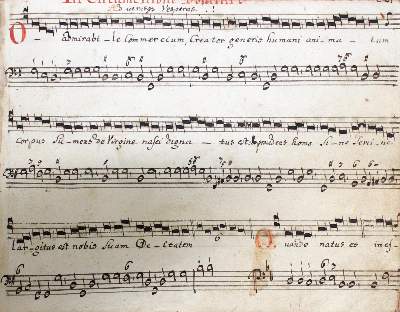 In Circumcisione Domini
Ad utrasq Vesperas.
O admirabi-le Commercium, Creator generis humani ani-ma-tum
Corpus Su-mens de Virgine nasci digna-tus est & procedens homo Si-ne Semi-ne
Lar-gitus est nobis suam De-itatem Quando natus es inef-